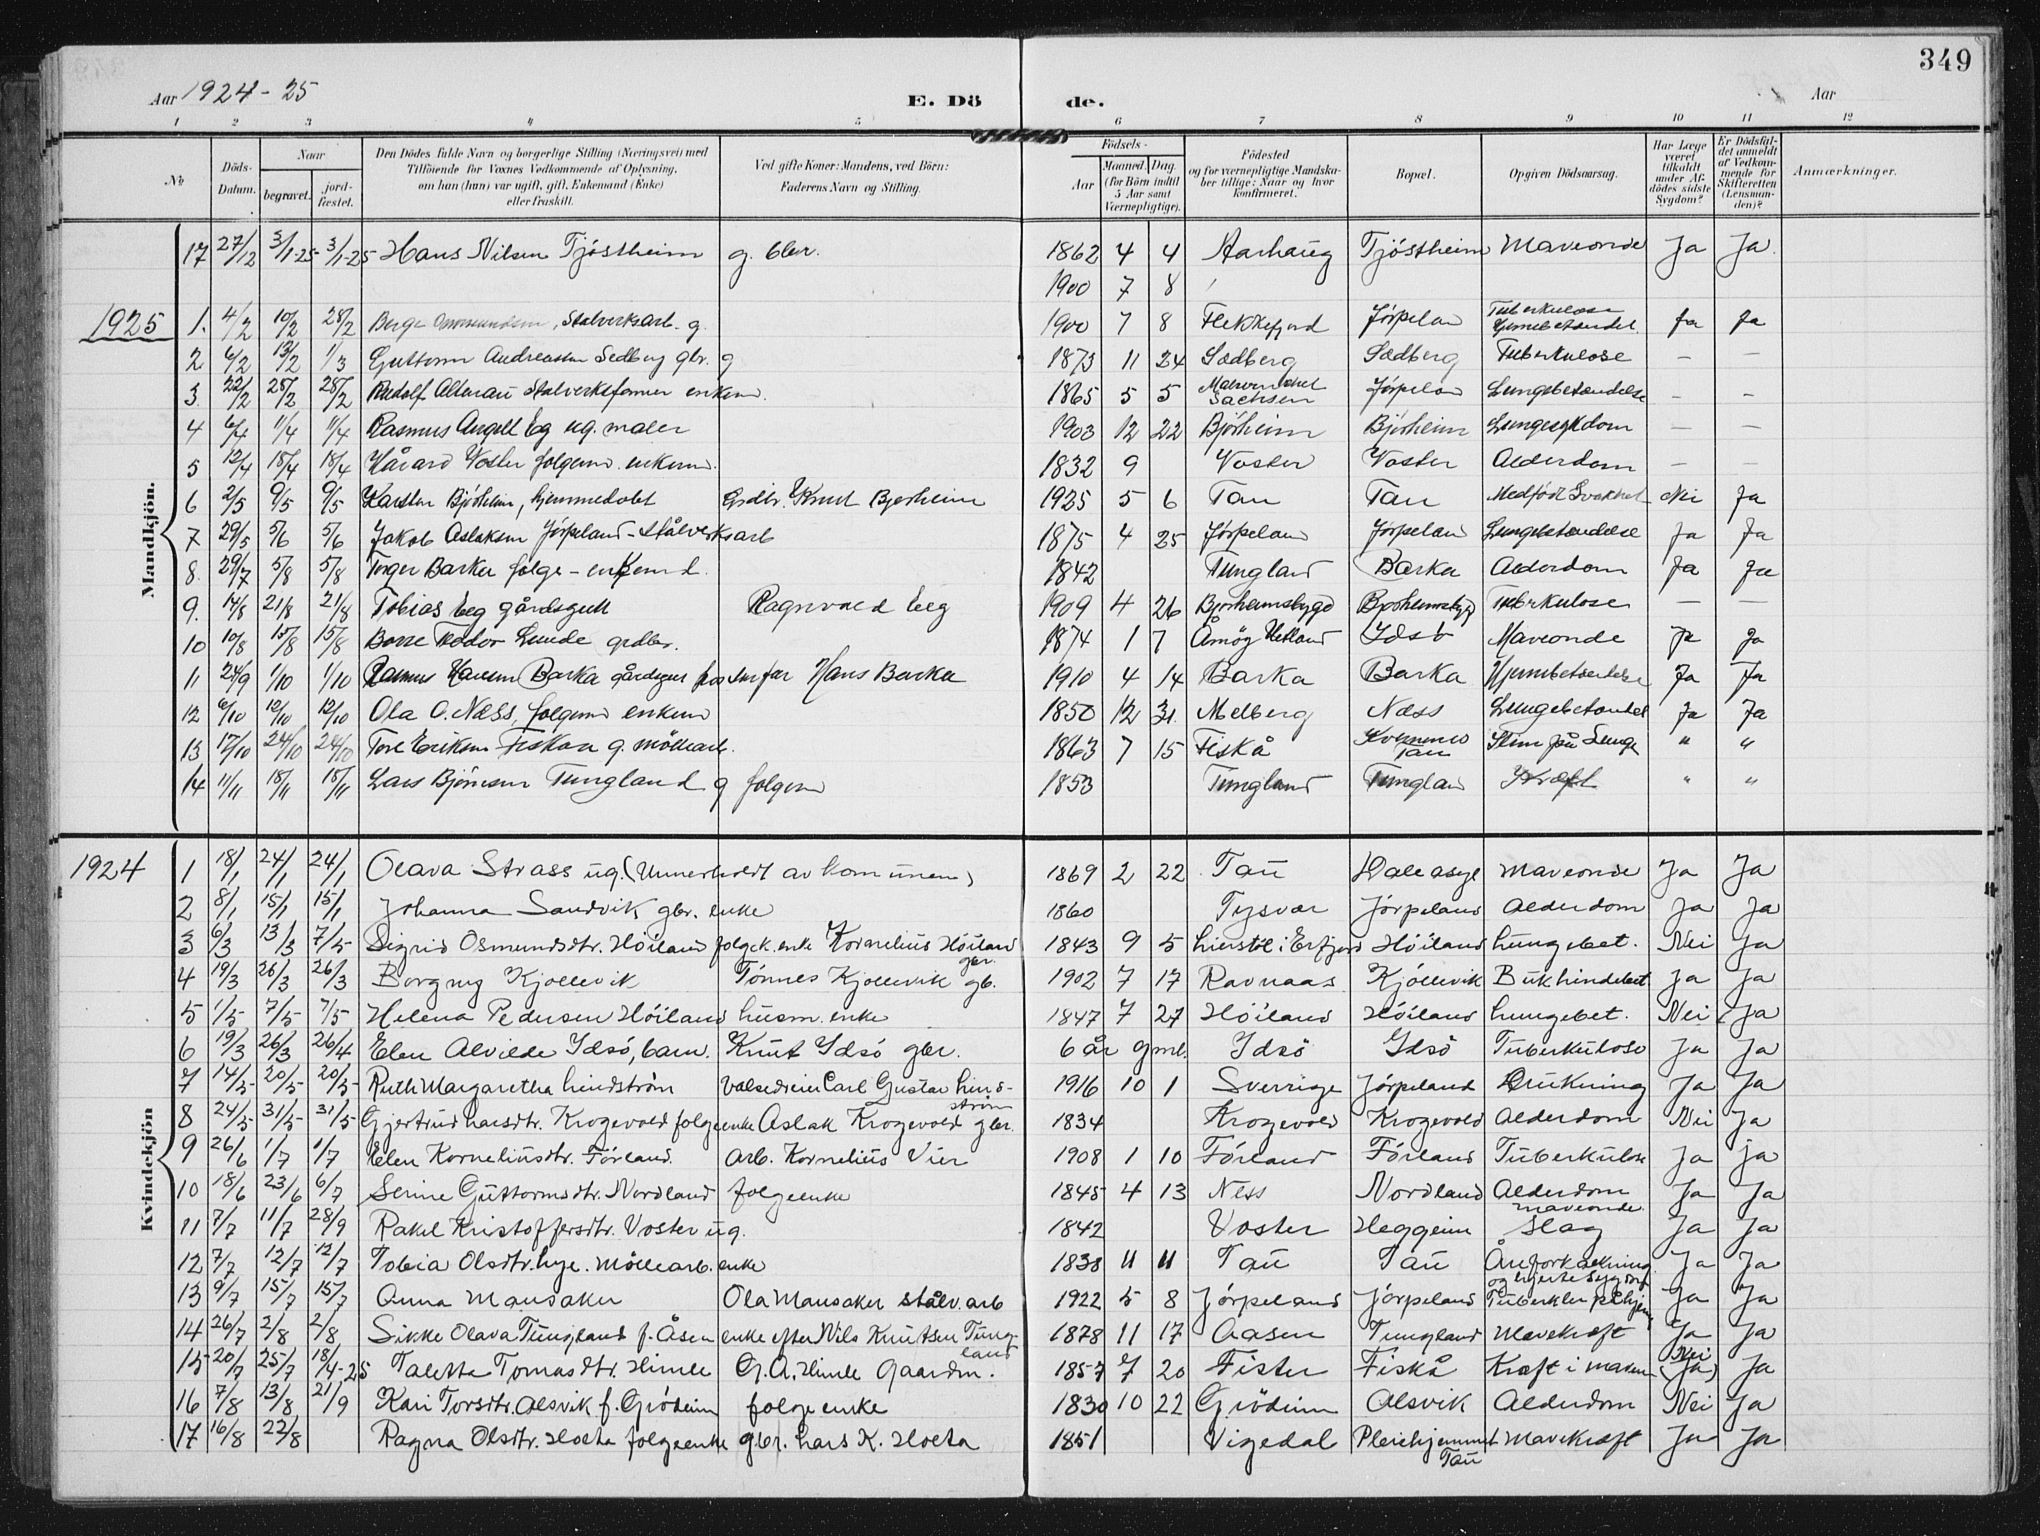 349
Aar 1924-25 E. Döde. Aar
1 2 3 4 5 6 7 8 9 10 11 12
№ Döds-Datum. Naar begravet. jordfæstet. Den Dödes fulde Navn og borgerlige Stilling (Næringsvei) med Tilföiende for Voxnes Vedkommende af Oplysning, om han (hun) var ugift, gift, Enkemand (Enke) eller fraskilt. Ved gifte Koner: Mandens, ved Börn: Faderens Navn og Stilling. Födsels- Aar Maaned. Dag. (for Börn indtil 5 Aar samt Værnepligtige). Födested og for værnepligtige Mandskaber tillige: Naar og hvor konfirmeret. Bopæl. Opgiven Dödsaarsag. Har Læge været tilkaldt under Afdödes sidste Sygdom? Er Dödsfaldet anmeldt af Vedkommende for Skifteretten (Lensmanden)? Anmærkninger.
Mandkjön.
17 27/12 3/1-25 3/1-25 Hans Nilsen Tjöstheim g. Gbr. 1862 4 4 Aarhaug Tjöstheim Maveonde Ja Ja.
1900 7 8
1925 1. 4/2 10/2 28/2 Berge , Stalverksarb. g. 1900 7 8 Flekkefjord Jörpelan Tuberkulose Hjernebetændel. Ja Ja
2 6/2 13/2 1/3 Guttorm Andreassen Sedberg gbr. g 1873 11 24 Sædberg Sædberg Tuberkulose — —
3. 22/2 28/2 28/2 Rudolf Altenau Stalverksformer enkem. 1865 5 5 Sachsen Jörpelan Lungebetændelse — —
4 6/4 11/4 11/4 Rasmus Angell Eg ug. maler 1903 12 22 Björheim Björheim Lungesykdom — —
5 12/4 18/4 18/4 Håvard Voster folgem. enkem. 1832 9 Voster Voster Alderdom — —
6 2/5 9/5 9/5 Karsten Björheim, hjemmedobt Grdbr. Knut Bjerheim 1925 5 6 Tau Tau Medfödt Svakhet Nei Ja
7 29/5 5/6 5/6 Jakob Aslaksen Jörpeland - Stålverksarb 1875 4 25 Jörpelan Jörpelan Lungebetændelse Ja Ja
8. 29/7 5/8 5/8 Torger Barka folge - enkemd. 1842 Tungland Barka Alderdom Ja Ja
9. 14/8 21/8 21/8 Tobias Eeg gårdsgutt Ragnvald Eeg 1909 4 26 Bjorheimsbygd Bjorheimsbygd Tuberkulose — —
10 10/8 15/8 15/8 Borre Tedor Lunde grdbr. 1874 1 7 Åmöy Hetland Idsö Maveonde Ja Ja
11 24/9 1/10 1/10 Rasmus Hansen Barka gårdsgut hos sin far Hans Barka 1910 4 14 Barka Barka Hjernebetændelse Ja Ja
12 6/10 12/10 12/10 Ola O. Næss, folgem enkem 1850 12 31. Melberg Næss Lungebetændel Ja Ja
13 17/10 24/10 24/10 Tore Eriksen Fiskaa g. möllearb. 1863 7 15 Fiskå Tau Slim på Lunge " "
14 11/11 18/11 18/11 Lars Björnsen Tungland g folgem 1853 Tungland Tunglan Kræft " "
Kvindekjön
1924 1 18/1 24/1 24/1 Olava Strass ug. (Understodt av komunen) 1869 2 22 Tau Dale asyl Maveonde Ja Ja
2 8/1 15/1 15/1 Johanna Sandvik gbr. enke 1860 Tysvær Jörpeland Alderdom Ja Ja
3 6/3 13/3 7/5 Sigrid Osmundsdtr. Höiland folgek. enke Kornelius Höiland gbr. 1843 9 5 Lierstöl i Erfjord Höiland Lungebet. Nei Ja
4 19/3 26/3 26/3 Borgny Kjöllevik Tönnes Kjöllevik gb. 1902 7 17 Ravnaas Kjöllevik Bukhindebet Ja Ja
5 1/5 7/5 7/5 Helena Pedersen Höiland husm. enke 1847 7 27 Höiland Höiland Lungebet. Nei Ja
6 19/3 26/3 26/4 Elen Alvilde Idsö, barn. Knut Idsö gbr. 6 år gml. Idsö Idsö Tuberkulose Ja Ja
7 14/5 20/5 20/5 Ruth Margaretha Lindström Valsedreier Carl Gustav Lindström 1916 10 1 Sverrige Jörpeland Drukning Ja Ja
8 24/5 31/5 31/5 Gjertrud Larsdtr. Krogevold folgeenke Aslak Krogevold gbr. 1834 Krogevold Krogevold Alderdom Nei Ja
9 26/6 1/7 1/7 Elen Korneliusdtr. Förland. Arb. Kornelius Vier 1908 1 10 Förland Förland Tuberkulose Ja Ja
10 18/6 23/6 6/7 Serine Guttormsdtr. Nordland folgeenke 1845 4 13 Ness Nordland Alderdom maveonde Ja Ja
11 7/7 11/7 28/9 Rakel Kristoffersdtr. Voster ug. 1842 Voster Heggeim Slag Ja Ja
12 7/7 12/7 12/7 Tobia Olsdtr. Lye. Möllearb. enke 1838 11 11 Tau Tau Åreforkalkning og hjerte sygdom Ja Ja
13 9/7 15/7 15/7 Anna Mansaker Ola Mansaker stålv. arb 1922 5 8 Jörpeland Jörpeland Tuberkler på hjern Ja Ja
14 26/7 2/8 2/8 Sikke Olava Tungland f. Åsen enke efter Nils Knutsen Tungland 1878 11 17 Aasen Tungland Mavekræft Ja Ja
15 20/7 25/7 18/4-25 Taletta Tomasdtr. Himle G. A. Himle Gaardm. 1857 7 20 Fister Fiskå Kræft i maven Nei (Ja) Ja
16 7/8 13/8 21/9 Kari Torsdtr. Alsvik f. Grödeim folge enke 1830 10 22 Grödeim Alsvik Alderdom Nei Ja
17 16/8 22/8 Ragna Olsdtr. Holta folgeenke gbr. Lars K. Holta 1851 Vigedal Pleiehjemmet Tau Mavekræft Ja Ja